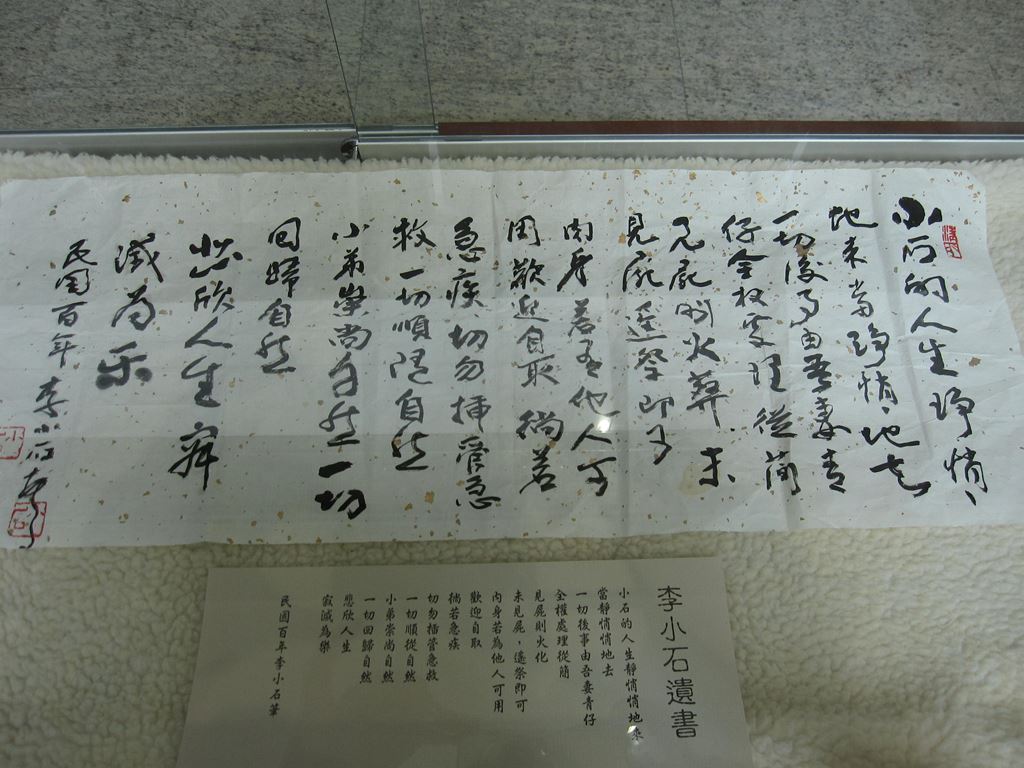 小石的人生靜悄悄
地来當靜悄悄地去
一切後事由吾妻青
仔全权处理從简
見屍則火葬未
見屍遥祭即可
肉身若为他人可
用歡迎自取徜若
急疾切勿插管急
救一切順随自然
小弟崇尚自然一切
回歸自然
悲欣人生寂
滅为乐
民国百年李小石筆
李小石遺書
小石的人生靜悄悄地來
當靜悄悄地去
一切後事由吾妻青仔
全權處理從簡
見屍則火化
未見屍，遙祭即可
內身若為他人可用
歡迎自取
徜若急疾
切勿插管急救
一切順從自然
小弟崇尚自然
一切回歸自然
悲欣人生
寂滅為樂
民國百年李小石筆